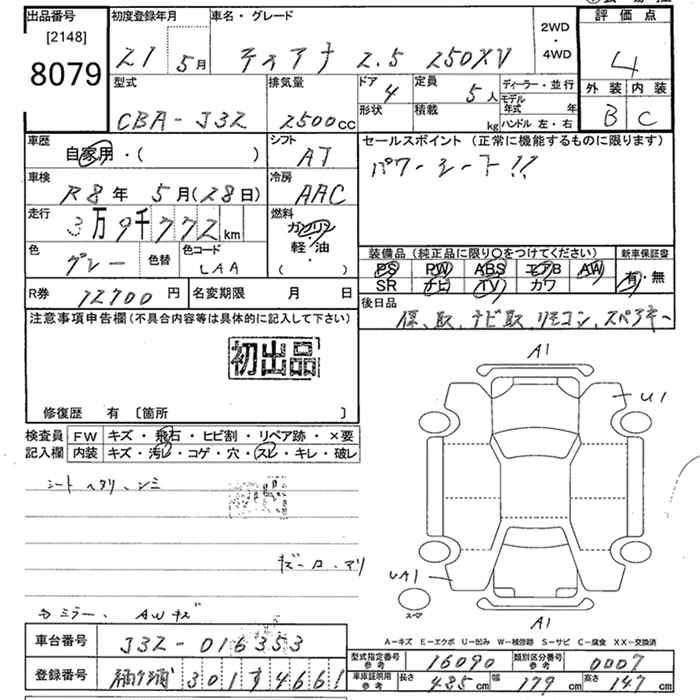 出品番号 初度登録年月 車名・グレード 2WD・4WD 評価点
[2148]
8079 21 5月 ティアナ 2.5 250XV 4
型式 排気量 ドア 4 定員 5人 ディーラー・並行 外装 内装
CBA-J32 2500cc 形状 積載 kg モデル年式 年 B C
ハンドル 左・右
車歴 自家用・( ) シフト AT セールスポイント (正常に機能するものに限ります)
パワーシート!!
車検 R8年 5月(28日) 冷房 AAC
走行 3万9千772km 燃料 ガソリン
軽・油
( )
色 グレー 色替 色コード LAA
装備品 (純正品に限り〇をつけてください) 新車保証書
PS PW ABS エアB AW 有・無
SR ナビ TV カワ
R券 12700円 名変期限 月 日 後日品
保、取、ナビ取、リモコン、スペアキー
注意事項申告欄(不具合内容等は具体的に記入して下さい)
初出品
修復歴 有 〔箇所 〕
検査員 FW キズ・飛石・ヒビ割・リペア跡・×要
記入欄 内装 キズ・汚レ・コゲ・穴・スレ・キレ・破レ
シートヘタリ、シミ
A1
U1
UA1
スペア
A1
ミラー、AWキズ
A-キズ E-エクボ U-凹み W-補修跡 S-サビ C-腐食 XX-交換済
車台番号 J32-016353
型式指定番号 参考 16090 類別区分番号 参考 0007
登録番号 301す4661
車庫証明用 参考 長さ 485cm 幅 179cm 高さ 147cm